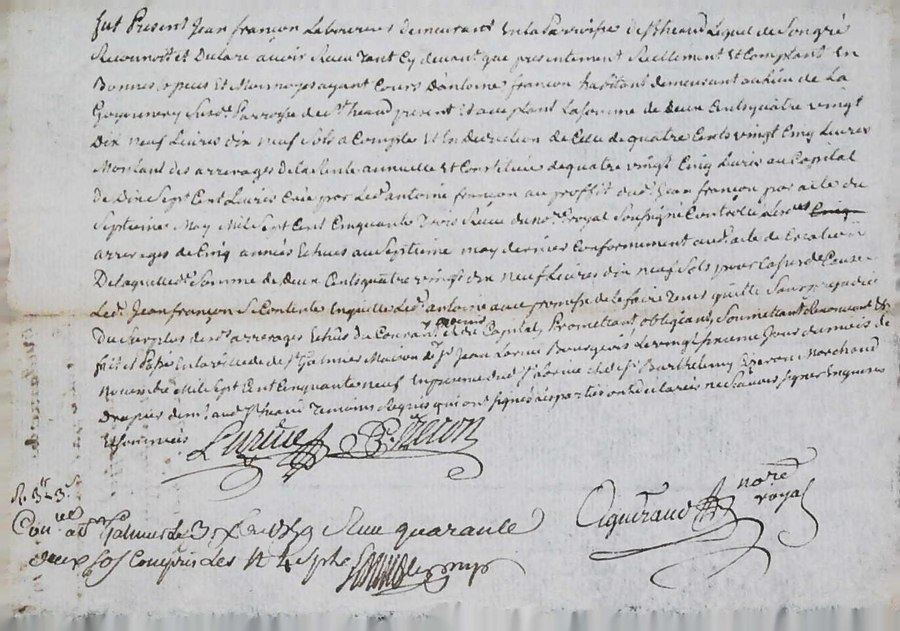 fut Present Jean françon Laboureur demeurant En la Parroisse de St heand Lequel de Son gré
Reconnoit et Declare avoir Receu Tant Cy devant que presentement Reellement Et Comptant En
Bonnes Especes Et Monnoyes ayant Cours D'antoine françon habitant demeurant au Lieu de La
Sud. Parroisse de St heand present Et acceptant La Somme de Deux Cents quatre vingt
Dix neuf Livres dix neuf Sols a Compte Et En Deduction de Celle de quatre Cents vingt Cinq Livres
Montant des arrerages de la Rente annuelle Et Constituée de quatre vingt Cinq Livres au Capital
de Dix Sept Cent Livres Créé par Led. antoine françon au proffit dud. Jean françon par acte du
Septieme May Mil Sept Cent Cinquante Trois Receu du nore. Royal Soussigné Controlé
arrerages de Cinq années Echues au Septieme may dernier Conformement aud. acte de Creation
De laquelle d. Somme de deux Cents quatre vingt dix neuf Livres dix neuf Sols pour La Susd. Cause
Led. Jean françon Se Contente En quitte Led. antoine avec promesse de le faire Tenir quitte Sans prejudice
Du Surplus desd. arrerages Echus du Courant Et du Capital, Promettant obligeant, Soumettant Renonçant &
fait et Passé En la ville de St Galmier Maison de Sr Jean Bourgeois Le vingt Jour du mois de
Novembre Mil Sept Cent Cinquante neuf En presence dud. Sr Et de Sr Barthelemy Marchand
Drapier dem. aud. St heand Temoins Requis qui ont Signé les parties ont declaré ne Scavoir Signer Enquis
Et Sommés
R. 3 S 3 d
Con. a St Galmier Le 3 Xbre 1759 Reçu quarante
deux sols Compris Les 4 s. p. L.
nore
royal